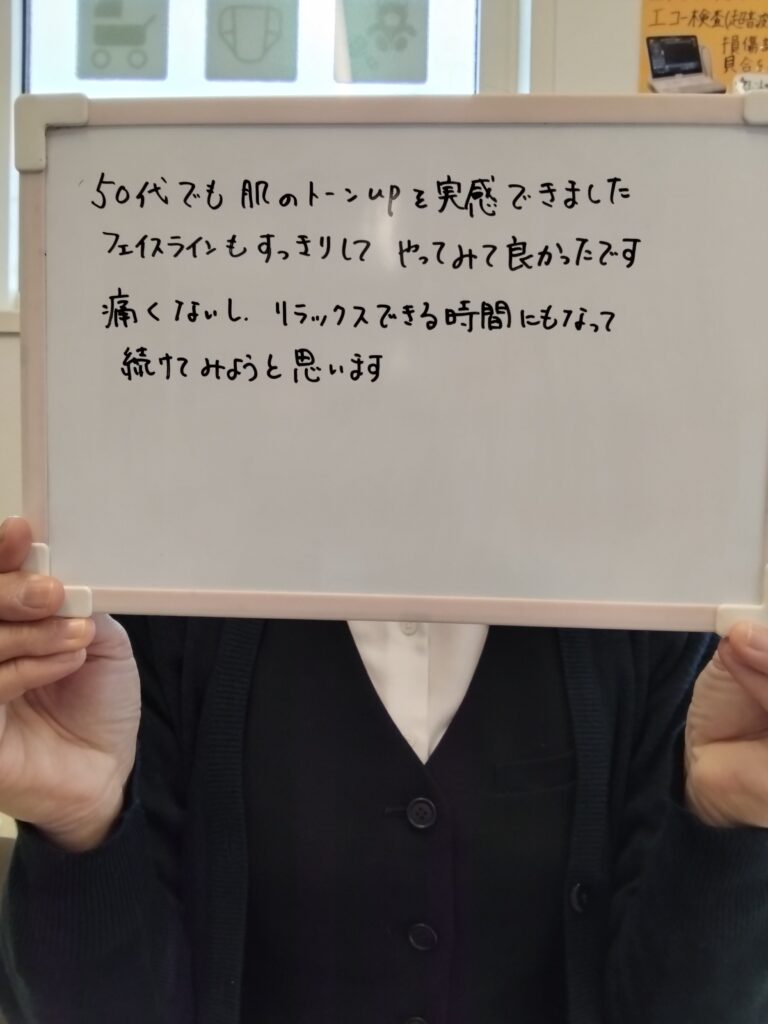 エコー検査(超音波
損傷
50代でも 肌のトーンupを実感できました
フェイスラインもすっきりして やってみて良かったです
痛くないし. リラックスできる時間にもなって
続けてみようと思います